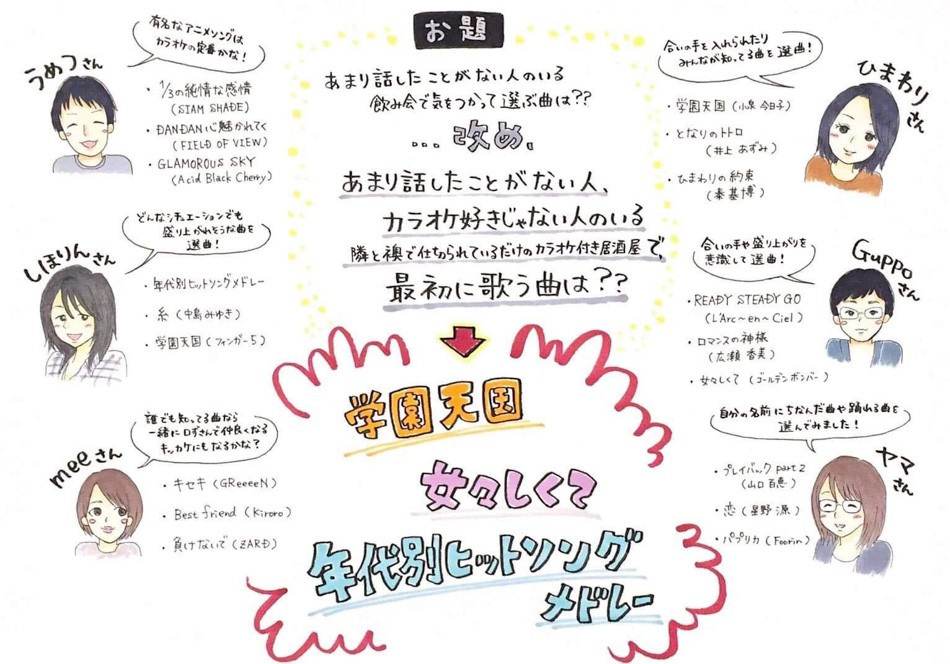 お題
あまり話したことがない人のいる
飲み会で気をつかって選ぶ曲は??
...改め、
あまり話したことがない人、
カラオケ好きじゃない人のいる
隣と襖で仕切られているだけのカラオケ付き居酒屋で、
最初に歌う曲は??
学園天国
女々しくて
年代別ヒットソング
メドレー
うめつさん
有名なアニメソングは
カラオケの定番かな!
・1/3の純情な感情
(SIAM SHADE)
・DANDAN心魅かれてく
(FIELD OF VIEW)
・GLAMOROUS SKY
(Acid Black Cherry)
しほりんさん
どんなシチュエーションでも
盛り上がれそうな曲を
選曲!
・年代別ヒットソングメドレー
・糸(中島みゆき)
・学園天国(フィンガー5)
meeさん
誰でも知ってる曲なら
一緒に口ずさんで仲良くなる
キッカケにもなるかな?
・キセキ(GReeeeN)
・Best friend(Kiroro)
・負けないで(ZARD)
ひまわりさん
合いの手を入れられたり
みんなが知ってる曲を選曲!
・学園天国(小泉今日子)
・となりのトトロ
(井上あずみ)
・ひまわりの約束
(秦基博)
Guppoさん
合いの手や盛り上がりを
意識して選曲!
・READY STEADY GO
(L'Arc〜en〜Ciel)
・ロマンスの神様
(広瀬香美)
・女々しくて(ゴールデンボンバー)
ヤマさん
自分の名前にちなんだ曲や踊れる曲を
選んでみました!
・プレイバックpart2
(山口百恵)
・恋(星野源)
・パプリカ(Foorin)